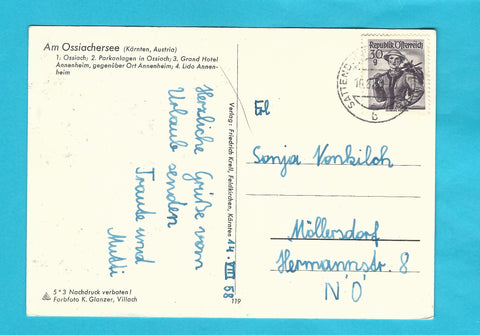 Am Ossiachersee (Kärnten, Austria)
1. Ossiach; 2. Parkanlagen in Ossiach; 3. Grand Hotel
Annenheim, gegenüber Ort Annenheim; 4. Lido Annen-
heim
Herzliche Grüße vom
Urlaub senden
Traute und
Mutti
14. VIII 58
Verlag: Friedrich Kreil, Feldkirchen, Kärnten
5*3 Nachdruck verboten!
Farbfoto K. Glanzer, Villach
119
Republik Österreich
30
g
SATTEND
b
Frl
Sonja Vonkilch
Möllersdorf
Hermannstr. 8
NÖ